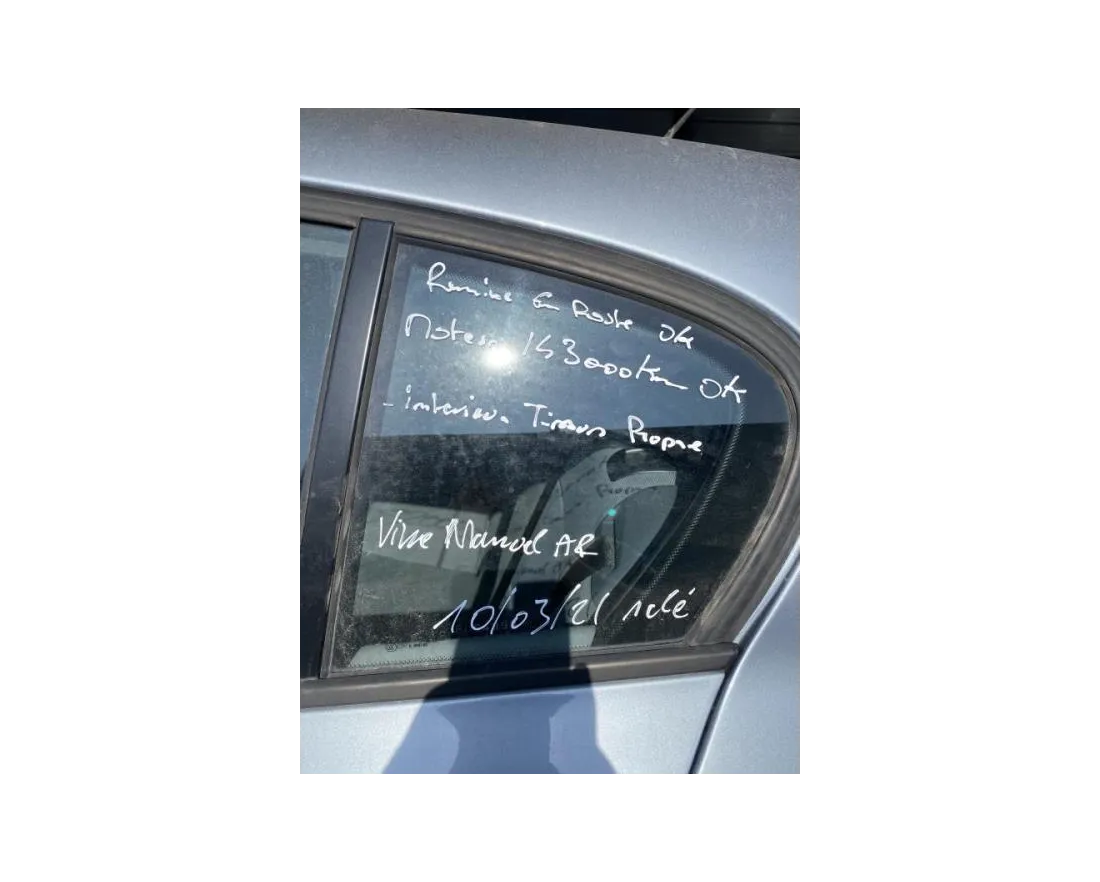 Remise En Route OK
Moteur 143000Km OK
- interieur Tissus Propre
Vitre Manuel AR
10/03/21 1 clé